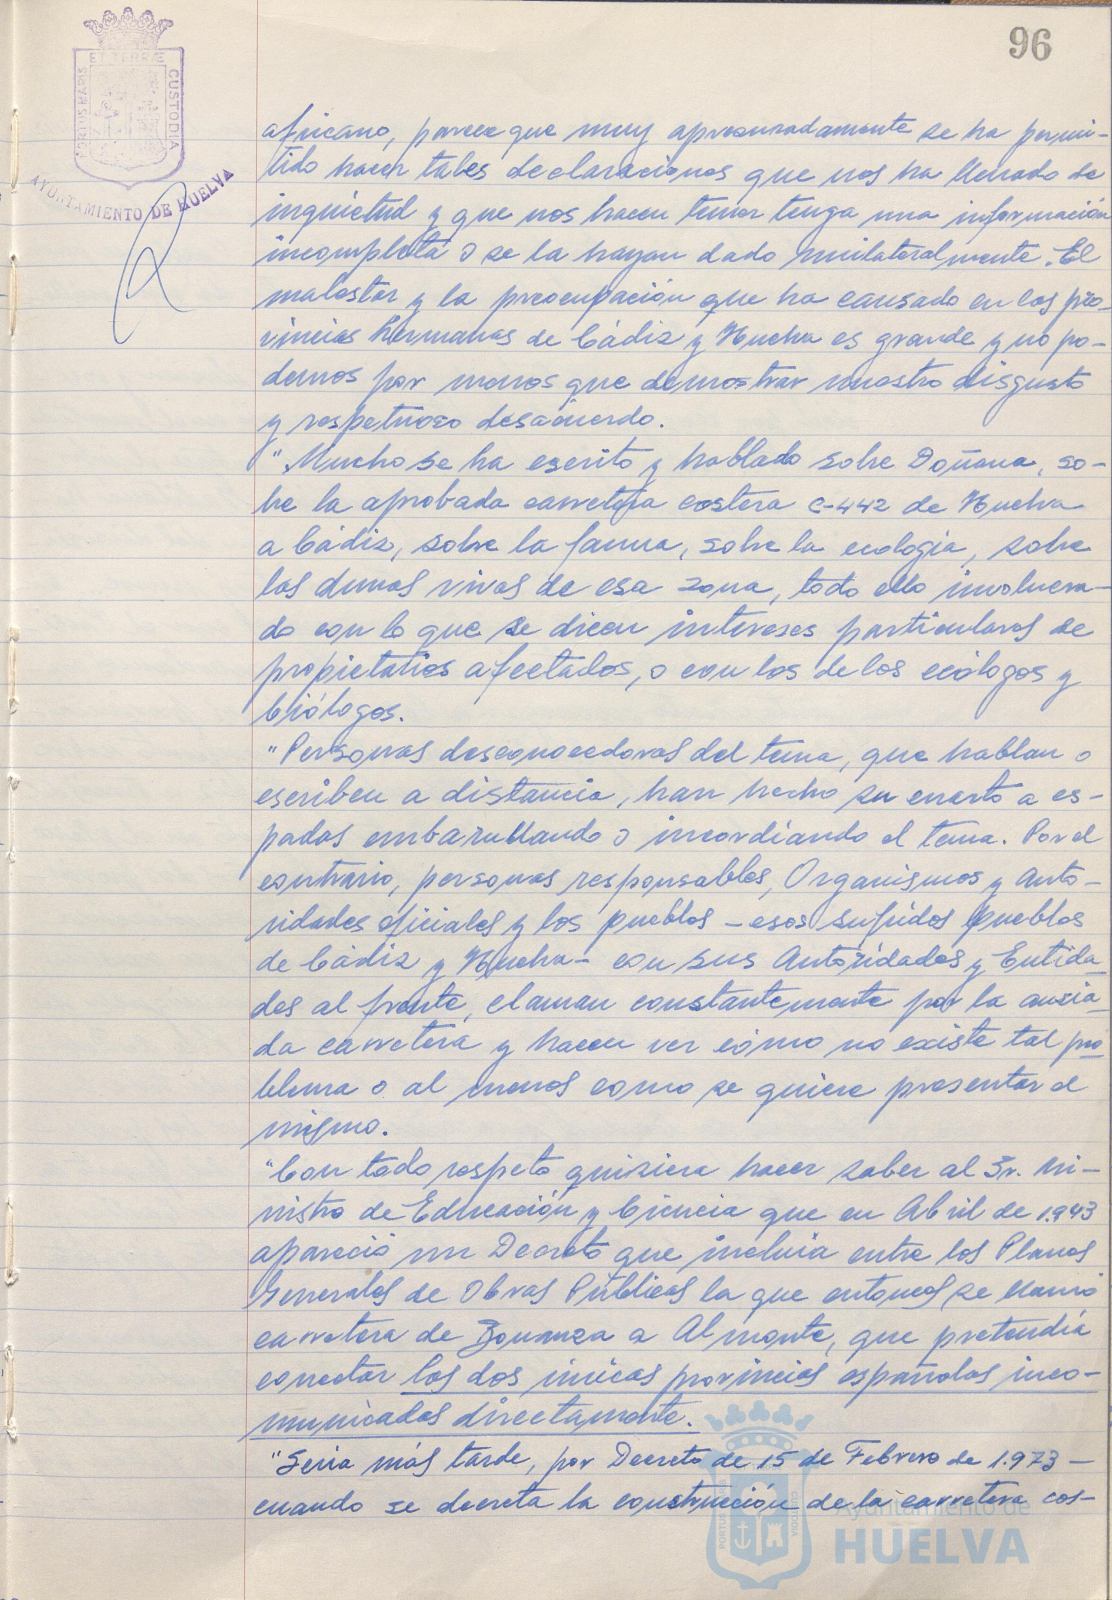 96
PORTUS MARIS
ET TERRÆ
CUSTODIA
AYUNTAMIENTO DE HUELVA
africano, parece que muy apresuradamente se ha permi-
tido hacer tales declaraciones que nos ha llenado de
inquietud y que nos hacen temer tenga una información
incompleta o se la hayan dado unilateralmente. El
malestar y la preocupación que ha causado en las pro-
vincias hermanas de Cádiz y Huelva es grande y no po-
demos por menos que demostrar nuestro disgusto
y respetuoso desacuerdo.
"Mucho se ha escrito y hablado sobre Doñana, so-
bre la aprobada carretera costera C-442 de Huelva
a Cádiz, sobre la fauna, sobre la ecología, sobre
las dunas vivas de esa zona, todo ello involucra-
do con lo que se dicen intereses particulares de
propietarios afectados, o con los de los ecólogos y
biólogos.
"Personas desconocedoras del tema, que hablan o
escriben a distancia, han hecho su cuarto a es-
padas embarullando o incordiando el tema. Por el
contrario, personas responsables, Organismos y Auto-
ridades oficiales y los pueblos - esos sufridos pueblos
de Cádiz y Huelva - con sus Autoridades y Entida-
des al frente, claman constantemente por la ansia-
da carretera y hacen ver cómo no existe tal pro-
blema o al menos como se quiere presentar el
mismo.
"Con todo respeto quisiera hacer saber al Sr. Mi-
nistro de Educación y Ciencia que en Abril de 1.943
apareció un Decreto que incluía entre los Planes
Generales de Obras Públicas la que entonces se llamó
carretera de Bonanza a Almonte, que pretendía
conectar las dos únicas provincias españolas inco-
municadas directamente.
"Sería más tarde, por Decreto de 15 de Febrero de 1.973 -
cuando se decreta la construcción de la carretera cos-
PORTUS
CUSTODIA
Ayuntamiento de
HUELVA